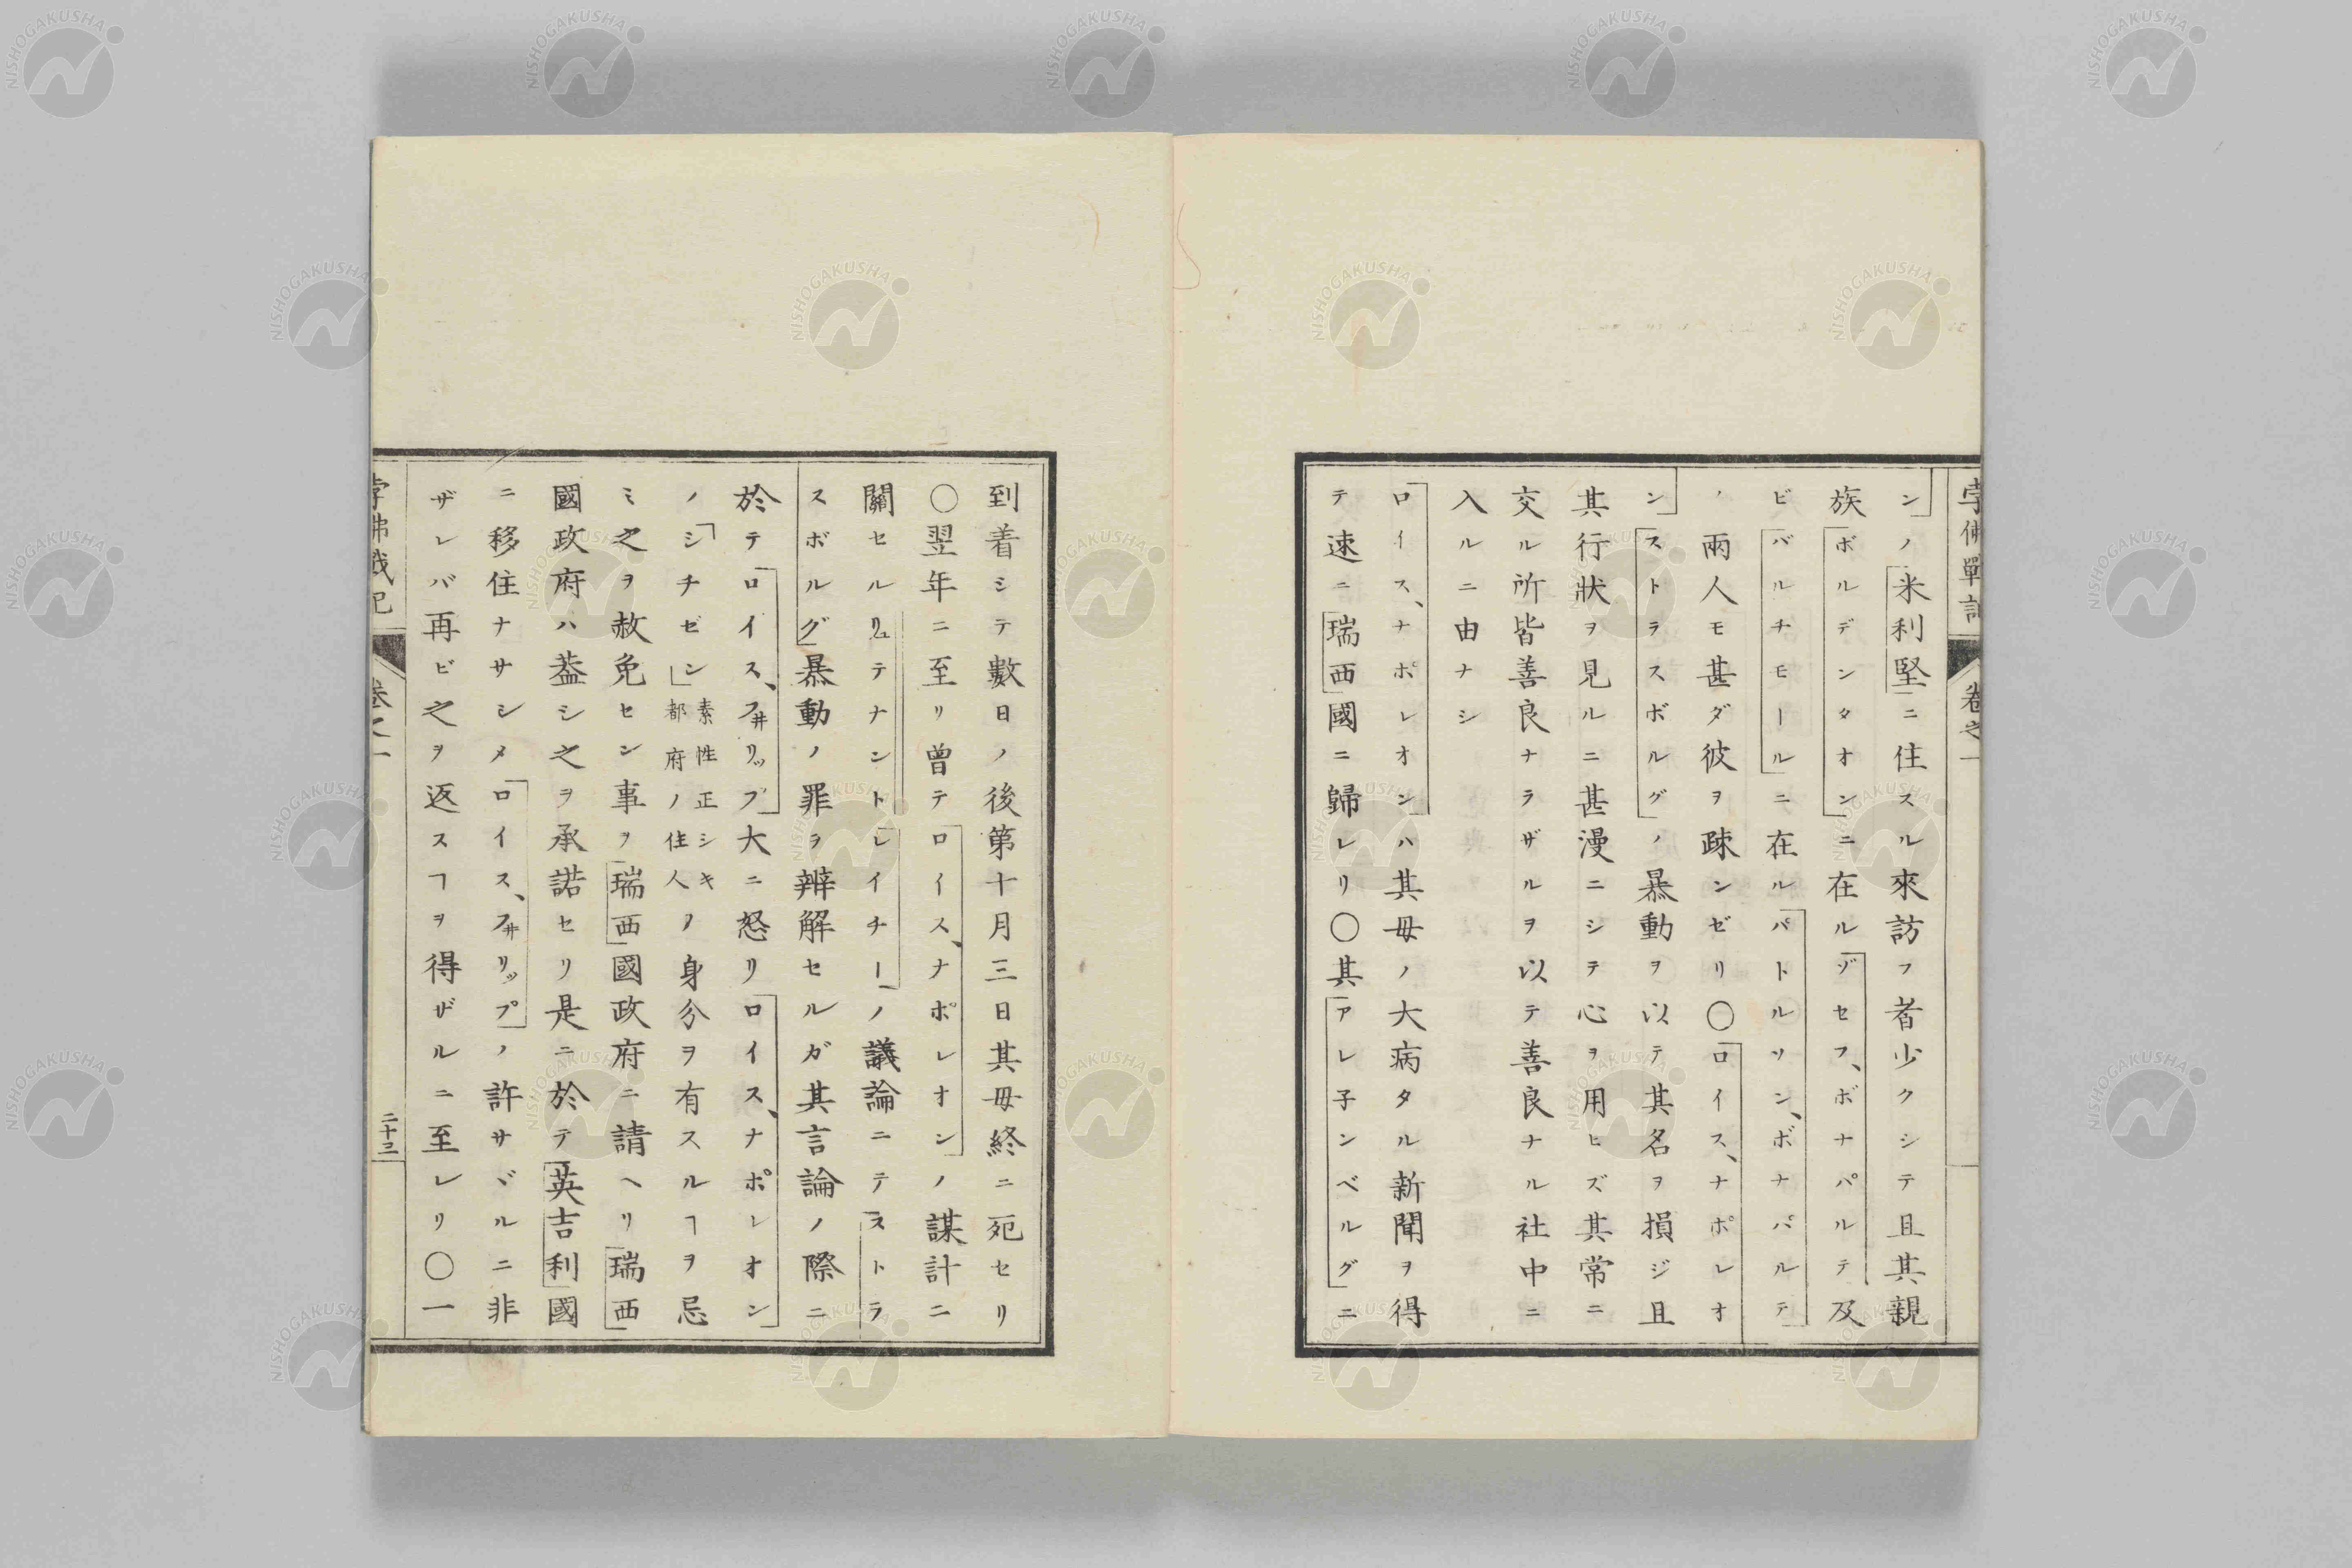 ン」ノ「米利堅」ニ住スル來訪フ者少クシテ且其親
族「ボルデンタオン」ニ在ル「ゾセフ、ボナパルテ」及
ビ「バルチモール」ニ在ル「パトルソン、ボナパルテ」
ノ兩人モ甚ダ彼ヲ疎ンゼリ〇「ロイス、ナポレオ
ン」「ストラスボルグ」ノ暴動ヲ以テ其名ヲ損ジ且
其行狀ヲ見ルニ甚漫ニシテ心ヲ用ヒズ其常ニ
交ル所皆善良ナラザルヲ以テ善良ナル社中ニ
入ルニ由ナシ
「ロイス、ナポレオン」ハ其母ノ大病タル新聞ヲ得
テ速ニ「瑞西」國ニ歸レリ〇其「アレ子ンベルグ」ニ
到着シテ數日ノ後第十月三日其母終ニ死セリ
〇翌年ニ至リ曾テ「ロイス、ナポレオン」ノ謀計ニ
關セル「リュテナント」「レイチー」ノ議論ニテ「ストラ
スボルグ」暴動ノ罪ヲ辨解セルガ其言論ノ際ニ
於テ「ロイス、フ井リップ」大ニ怒リ「ロイス、ナポレオン」
ノ「シチゼン」素性正シキ都府ノ住人ノ身分ヲ有スルヿヲ忌
ミ之ヲ赦免セン事ヲ「瑞西」國政府ニ請ヘリ「瑞西」
國政府ハ蓋シ之ヲ承諾セリ是ニ於テ「英吉利」國
ニ移住ナサシメ「ロイス、フ井リップ」ノ許サヾルニ非
ザレバ再ビ之ヲ返スヿヲ得ザルニ至レリ〇一
孛佛戰記
卷之一
二十三
NISHOGAKUSHA